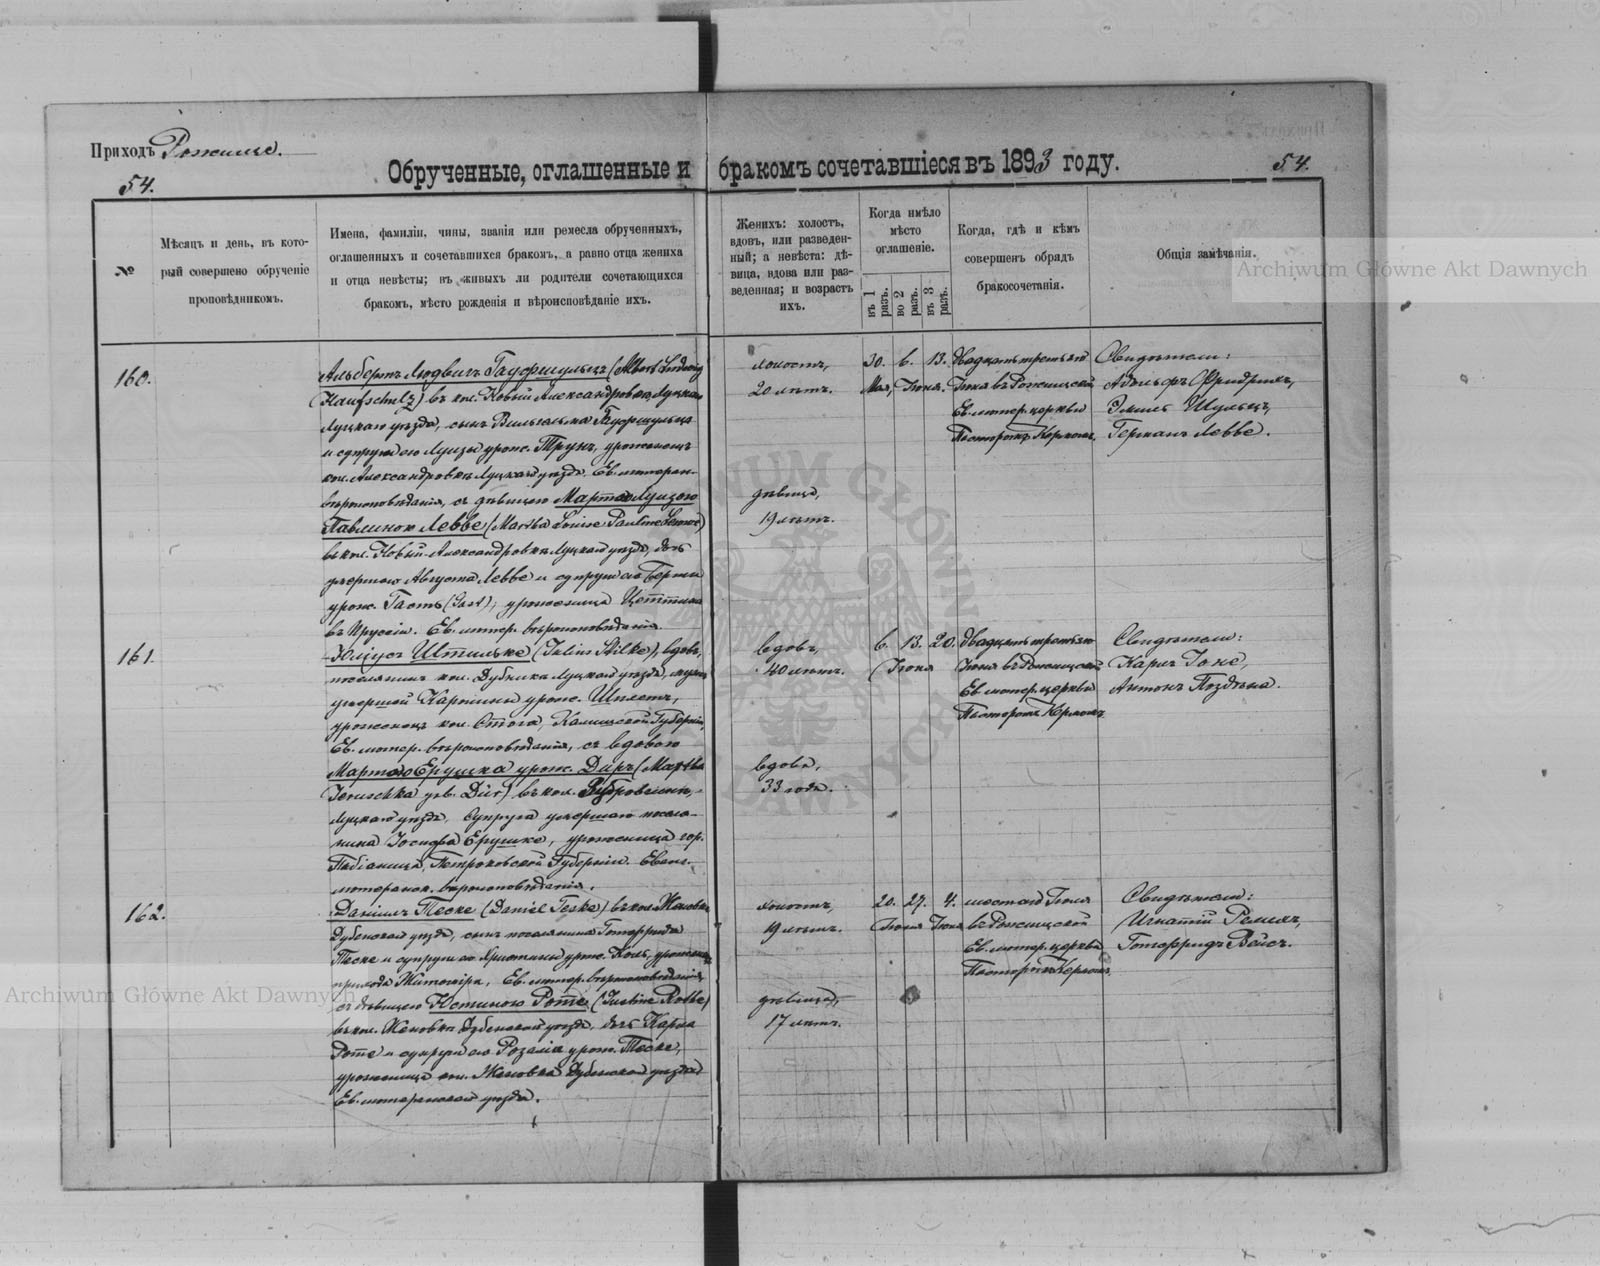 Приходъ Рожище.
54.
Обрученные, оглашенные и бракомъ сочетавшіеся въ 1893 году.
54.
№
Мѣсяцъ и день, въ кото-
рый совершено обрученіе
проповѣдникомъ.
Имена, фамиліи, чины, званія или ремесла обрученныхъ,
оглашенныхъ и сочетавшихся бракомъ, а равно отца жениха
и отца невѣсты; въ живыхъ ли родители сочетающихся
бракомъ, мѣсто рожденія и вѣроисповѣданіе ихъ.
Женихъ: холостъ,
вдовъ, или разведен-
ный; а невѣста: дѣ-
вица, вдова или раз-
веденная; и возрастъ
ихъ.
Когда имѣло
мѣсто
оглашеніе.
въ 1 разъ.
во 2 разъ.
въ 3 разъ.
Когда, гдѣ и кѣмъ
совершенъ обрядъ
бракосочетанія.
Общія замѣчанія.
160.
Альбертъ Людвигъ Гауфшульцъ (Albert Ludwig
Haufschulz) въ кол. Новый Александровка,
Луцкаго уѣзда, сынъ Вильгельма Гауфшульца
и супруги его Луизы урож. Трунъ, уроженецъ
кол. Александровка Луцкаго уѣзда. Ев. лютеран.
вѣроисповѣданія, съ дѣвицею Мартою Луизою
Павлиною Левве (Martha Louise Pauline
въ кол. Новый-Александровка Луцкаго уѣзда, дочь
Августа Левве и супруги его Берты
урож. Гастъ (Gast), уроженица
въ Пруссіи. Ев. лютер. вѣроисповѣданія.
холостъ,
20 лѣтъ.
дѣвица,
19 лѣтъ.
30. 6. 13.
Мая, Іюня.
Двадцать третьяго
Іюня въ Рожищской
Ев. лютер. церкви
Пасторомъ Керномъ.
Свидѣтели:
Адольфъ Фридрихъ,
Эмиль Шульцъ,
Германъ Левве.
161.
Юліусъ Штильке (Julius Stilke), вдовъ,
поселянинъ кол. Дубники Луцкаго уѣзда, мужъ
умершей Каролины урож.
уроженецъ кол. Калишской Губерніи,
Ев. лютер. вѣроисповѣданія, съ вдовою
Мартою Ерушка урож. Диръ (Martha
Jeruschka geb. Dür) въ кол.
Луцкаго уѣзда, Супруга умершаго поселя-
нина Іосифа Ерушко, уроженица гор.
Пабіаница, Петроковской Губерніи. Еванг.
лютеранск. вѣроисповѣданія.
вдовъ,
40 лѣтъ.
вдова,
33 года.
6. 13. 20.
Іюня
Двадцать третьяго
Іюня въ Рожищской
Ев. лютер. церкви
Пасторомъ Керномъ
Свидѣтели:
Карлъ
Антонъ
162.
Даніилъ Теске (Daniel Teske) въ кол. Жановка
Дубенскаго уѣзда, сынъ поселянина Готтфрида
Теске и супруги его Христины урож.
прихода Житоміра, Ев. лютер. вѣроисповѣданія,
съ дѣвицею Юстиною Ротте (Justine Rothe)
въ кол. Жановка Дубенскаго уѣзда, дочь Карла
Ротте и супруги его Розаліи урож. Теске,
уроженица кол. Жановка Дубенскаго уѣзда
Ев. лютеранской уѣзда.
холостъ,
19 лѣтъ.
дѣвица,
17 лѣтъ.
20. 27. 4.
Іюня
шестаго Іюля
въ Рожищской
Ев. лютер. церкви
Пасторомъ Керномъ
Свидѣтели:
Игнатій
Готтфридъ Вейсъ.
Archiwum Główne Akt Dawnych
Archiwum Główne Akt Dawnych